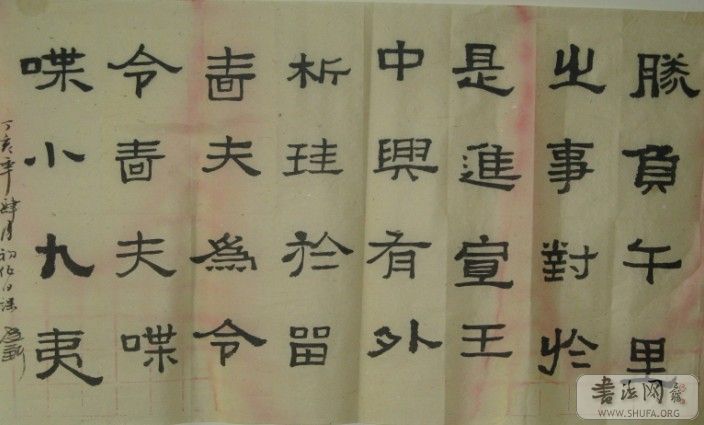 勝負午里
之事對於
是進宣王
中興有外
析珪於留
嗇夫為令
令嗇夫喋
喋小九夷
丁亥年肆月初
书法网
WWW.SHUFA.ORG